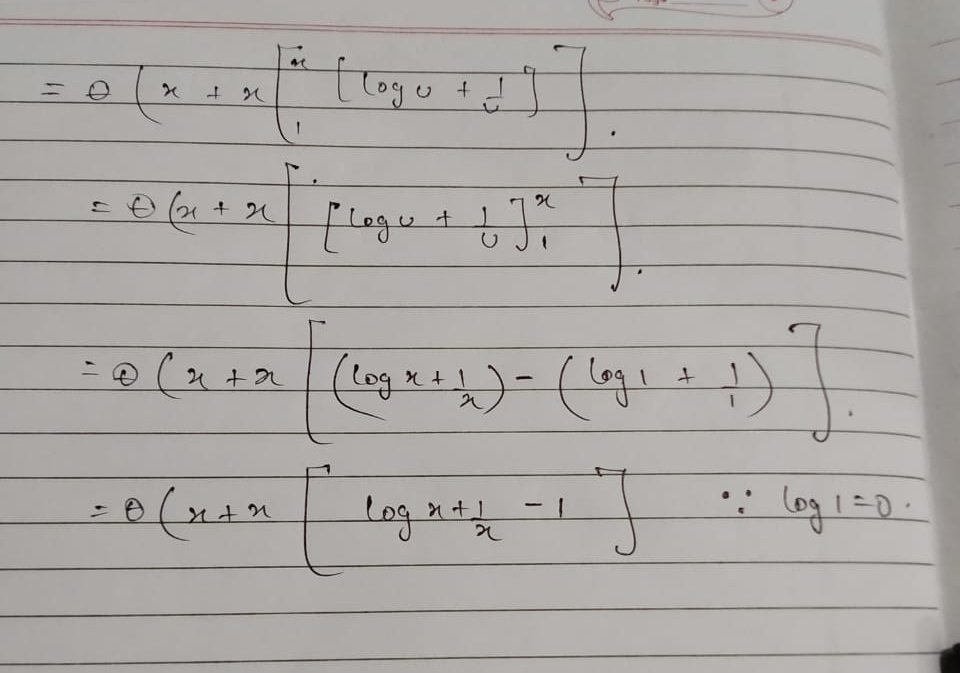 = θ (x + x [ₓ₁ [log u + 1/u] ] .
= θ (x + x [ [log u + 1/u]ˣ₁ ] .
= θ (x + x [ (log x + 1/x) - (log 1 + 1/1) ] .
= θ (x + x [ log x + 1/x - 1 ] ∵ log 1 = 0 .